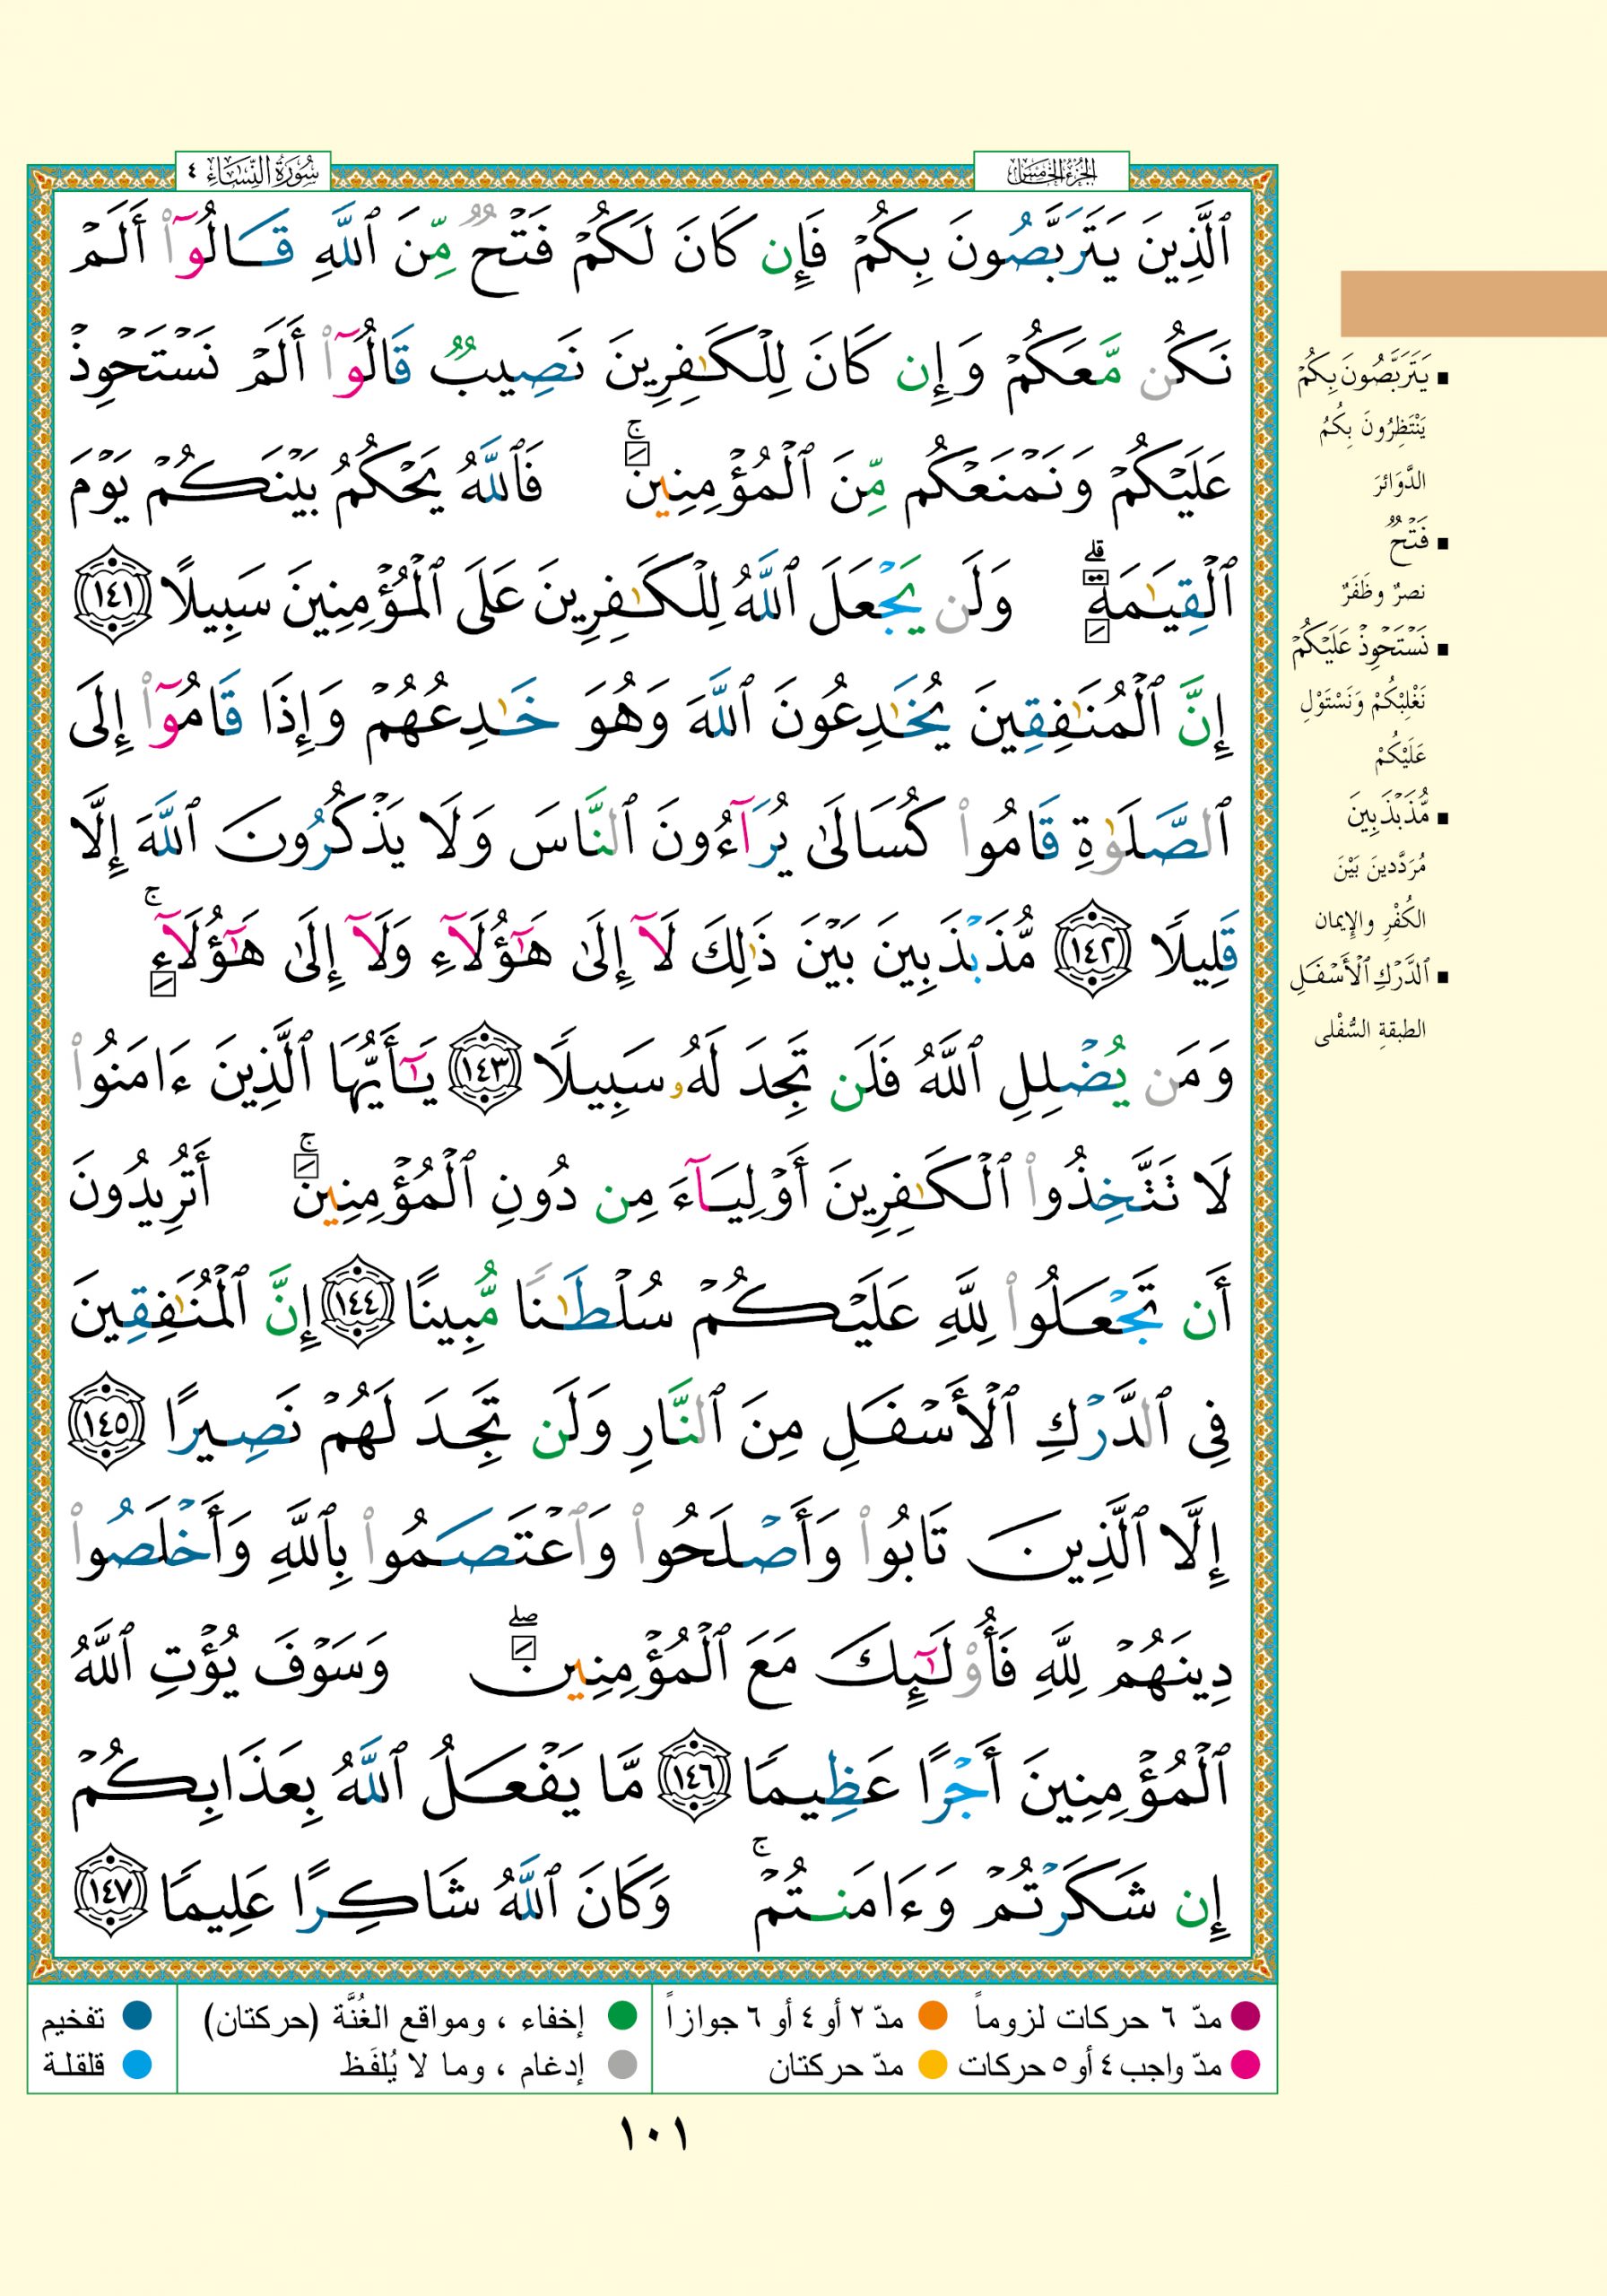 سُورَةُ النِّسَاءِ ٤
الجُزْءُ الخَامِسُ
ٱلَّذِينَ يَتَرَبَّصُونَ بِكُمْ فَإِن كَانَ لَكُمْ فَتْحٌ مِّنَ ٱللَّهِ قَالُوٓا۟ أَلَمْ
نَكُن مَّعَكُمْ وَإِن كَانَ لِلْكَـٰفِرِينَ نَصِيبٌ قَالُوٓا۟ أَلَمْ نَسْتَحْوِذْ
عَلَيْكُمْ وَنَمْنَعْكُم مِّنَ ٱلْمُؤْمِنِينَ ۚ فَٱللَّهُ يَحْكُمُ بَيْنَكُمْ يَوْمَ
ٱلْقِيَـٰمَةِ ۗ وَلَن يَجْعَلَ ٱللَّهُ لِلْكَـٰفِرِينَ عَلَى ٱلْمُؤْمِنِينَ سَبِيلًا ١٤١
إِنَّ ٱلْمُنَـٰفِقِينَ يُخَـٰدِعُونَ ٱللَّهَ وَهُوَ خَـٰدِعُهُمْ وَإِذَا قَامُوٓا۟ إِلَى
ٱلصَّلَوٰةِ قَامُوا۟ كُسَالَىٰ يُرَآءُونَ ٱلنَّاسَ وَلَا يَذْكُرُونَ ٱللَّهَ إِلَّا
قَلِيلًا ١٤٢ مُّذَبْذَبِينَ بَيْنَ ذَٰلِكَ لَآ إِلَىٰ هَـٰٓؤُلَآءِ وَلَآ إِلَىٰ هَـٰٓؤُلَآءِ ۚ
وَمَن يُضْلِلِ ٱللَّهُ فَلَن تَجِدَ لَهُۥ سَبِيلًا ١٤٣ يَـٰٓأَيُّهَا ٱلَّذِينَ ءَامَنُوا۟
لَا تَتَّخِذُوا۟ ٱلْكَـٰفِرِينَ أَوْلِيَآءَ مِن دُونِ ٱلْمُؤْمِنِينَ ۚ أَتُرِيدُونَ
أَن تَجْعَلُوا۟ لِلَّهِ عَلَيْكُمْ سُلْطَـٰنًا مُّبِينًا ١٤٤ إِنَّ ٱلْمُنَـٰفِقِينَ
فِى ٱلدَّرْكِ ٱلْأَسْفَلِ مِنَ ٱلنَّارِ وَلَن تَجِدَ لَهُمْ نَصِيرًا ١٤٥
إِلَّا ٱلَّذِينَ تَابُوا۟ وَأَصْلَحُوا۟ وَٱعْتَصَمُوا۟ بِٱللَّهِ وَأَخْلَصُوا۟
دِينَهُمْ لِلَّهِ فَأُو۟لَـٰٓئِكَ مَعَ ٱلْمُؤْمِنِينَ ۖ وَسَوْفَ يُؤْتِ ٱللَّهُ
ٱلْمُؤْمِنِينَ أَجْرًا عَظِيمًا ١٤٦ مَّا يَفْعَلُ ٱللَّهُ بِعَذَابِكُمْ
إِن شَكَرْتُمْ وَءَامَنتُمْ ۚ وَكَانَ ٱللَّهُ شَاكِرًا عَلِيمًا ١٤٧
■ يَتَرَبَّصُونَ بِكُمْ
يَنْتَظِرُونَ بِكُمُ
الدَّوَائرَ
■ فَتْحٌ
نصرٌ وظَفَرٌ
■ نَسْتَحْوِذْ عَلَيْكُمْ
نَغْلِبْكُمْ وَنَسْتَوْلِ
عَلَيْكُمْ
■ مُّذَبْذَبِينَ
مُرَدَّدينَ بَيْنَ
الكُفْرِ والإيمان
■ ٱلدَّرْكِ ٱلْأَسْفَلِ
الطبقةِ السُّفْلى
مدّ ٦ حركات لزوماً
مدّ ٢ أو ٤ أو ٦ جوازاً
إخفاء ، ومواقع الغُنَّة (حركتان)
تفخيم
مدّ واجب ٤ أو ٥ حركات
مدّ حركتان
إدغام ، وما لا يُلفَظ
قلقلة
١٠١